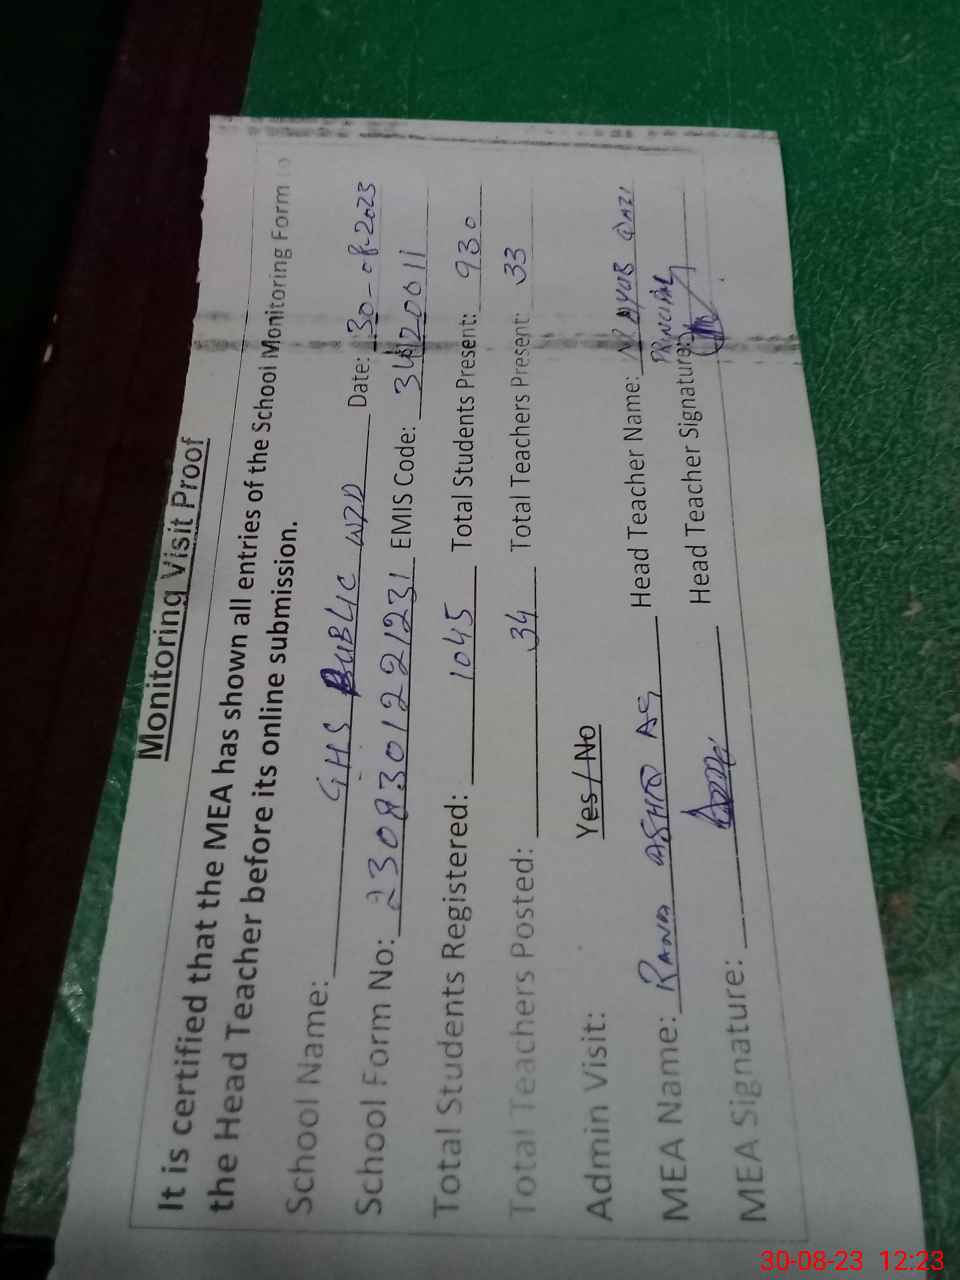 Monitoring Visit Proof
It is certified that the MEA has shown all entries of the School Monitoring Form to
the Head Teacher before its online submission.
School Name: GHS PUBLIC WZD Date: 30-08-2023
School Form No: 2308301221231 EMIS Code: 34120011
Total Students Registered: 1045 Total Students Present: 930
Total Teachers Posted: 34 Total Teachers Present: 33
Admin Visit: Yes/No
MEA Name: RANA Head Teacher Name: AYUB QAZI
PRINCIPAL
MEA Signature: Head Teacher Signature:
30-08-23 12:23